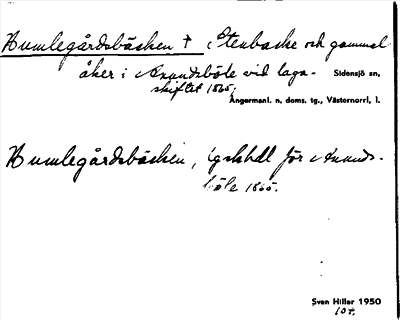 Humlegårdsbäcken † Stenbacke och gammal
åker i Anundsböle vid laga- Sidensjö sn,
skiftet 1865.
Ångermanl. n. doms. tg., Västernorrl, l.
Humlegårdsbäcken, lgskhdl för Anunds-
böle 1865.
Sven Hiller 1950
10 +.